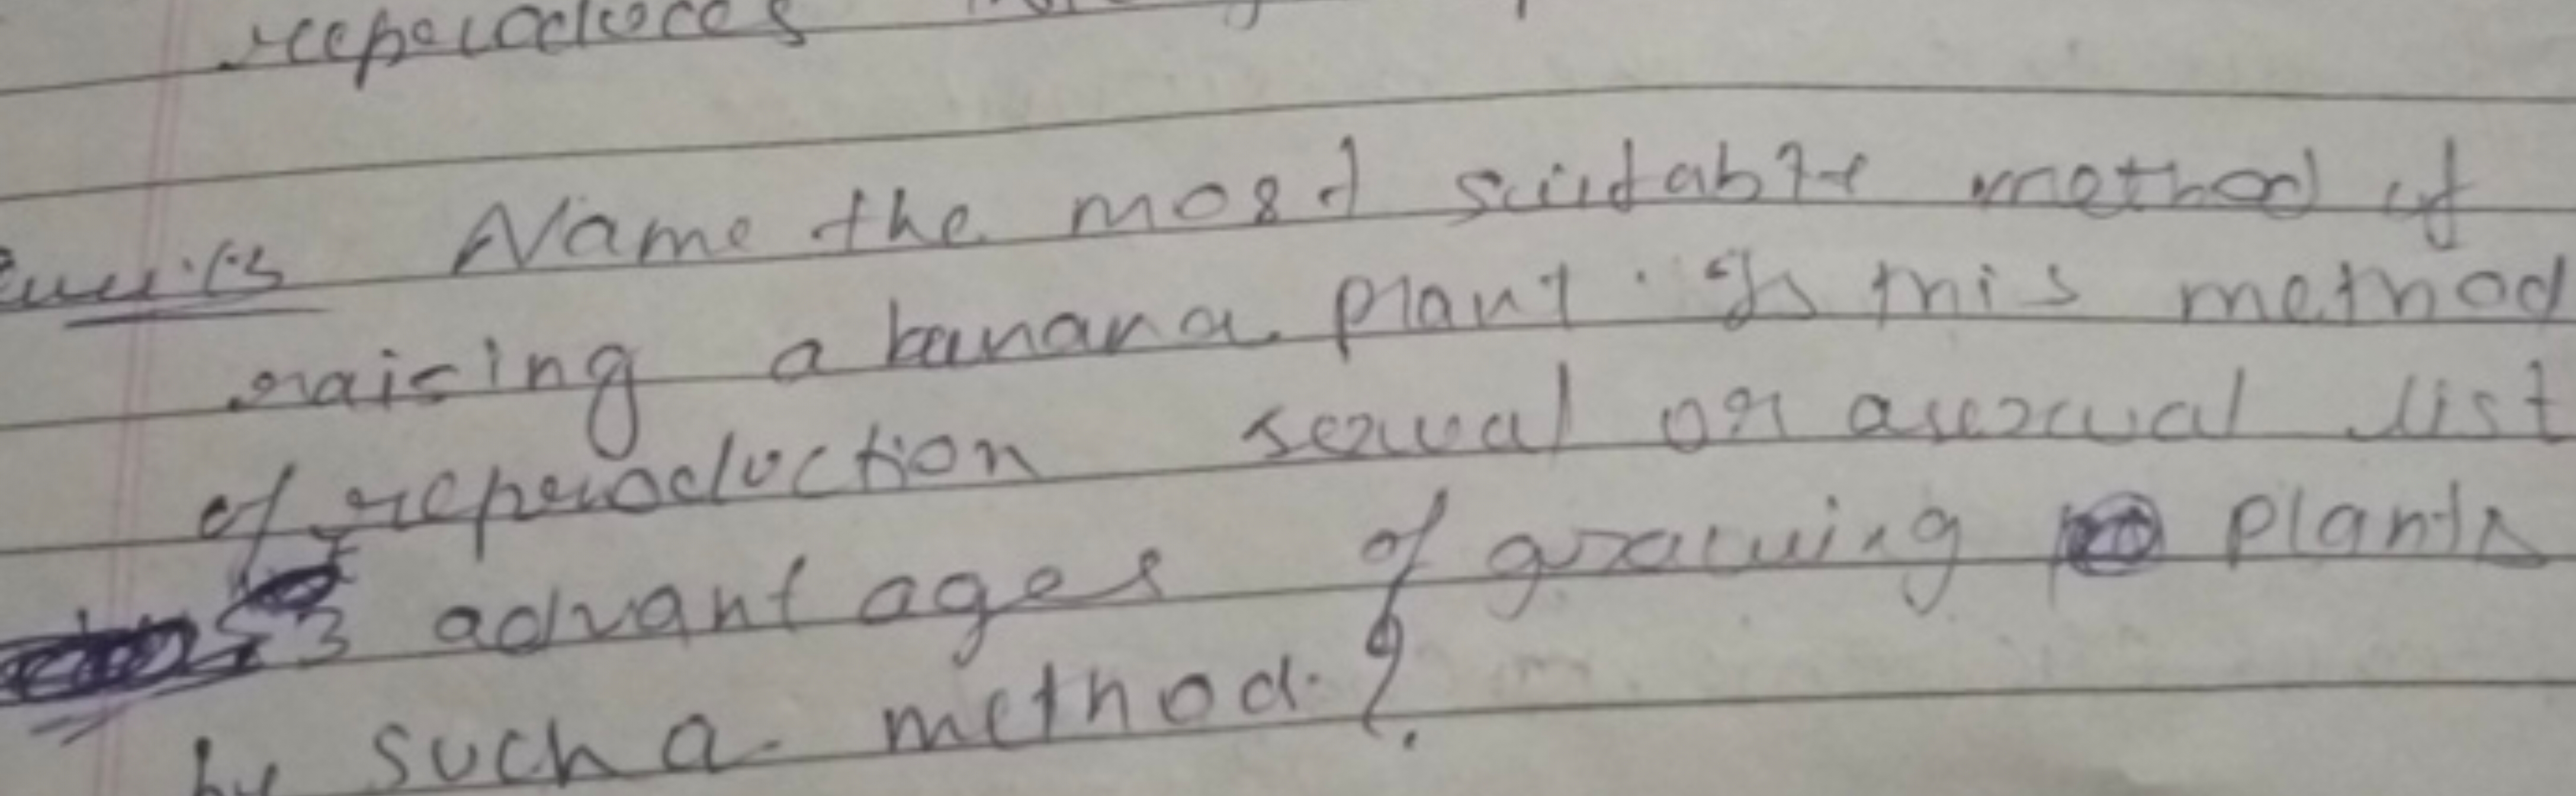 reproduces
Ques:15 Name the most suitable method of
raising a banana plant. Is this method
of reproduction sexual or asexual list
3 advantages of growing plants
by such a method.?